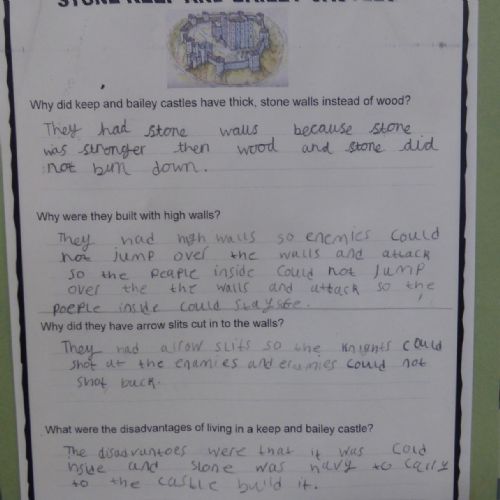 STONE KEEP AND BAILEY CASTLES
Why did keep and bailey castles have thick, stone walls instead of wood?
They had stone walls because stone
was stronger then wood and stone did
not burn down.
Why were they built with high walls?
They had high walls so enemies could
not jump over the walls and attack
so the peaple inside could not jump
over the the walls and attack so the
poeple inside could stay
Why did they have arrow slits cut in to the walls?
They had arrow slits so the knights could
shot at the enamies and enumies could not
shot back.
What were the disadvantages of living in a keep and bailey castle?
The disadvantoes were that it was cold
inside and stone was havy to carry
to the castle build it.